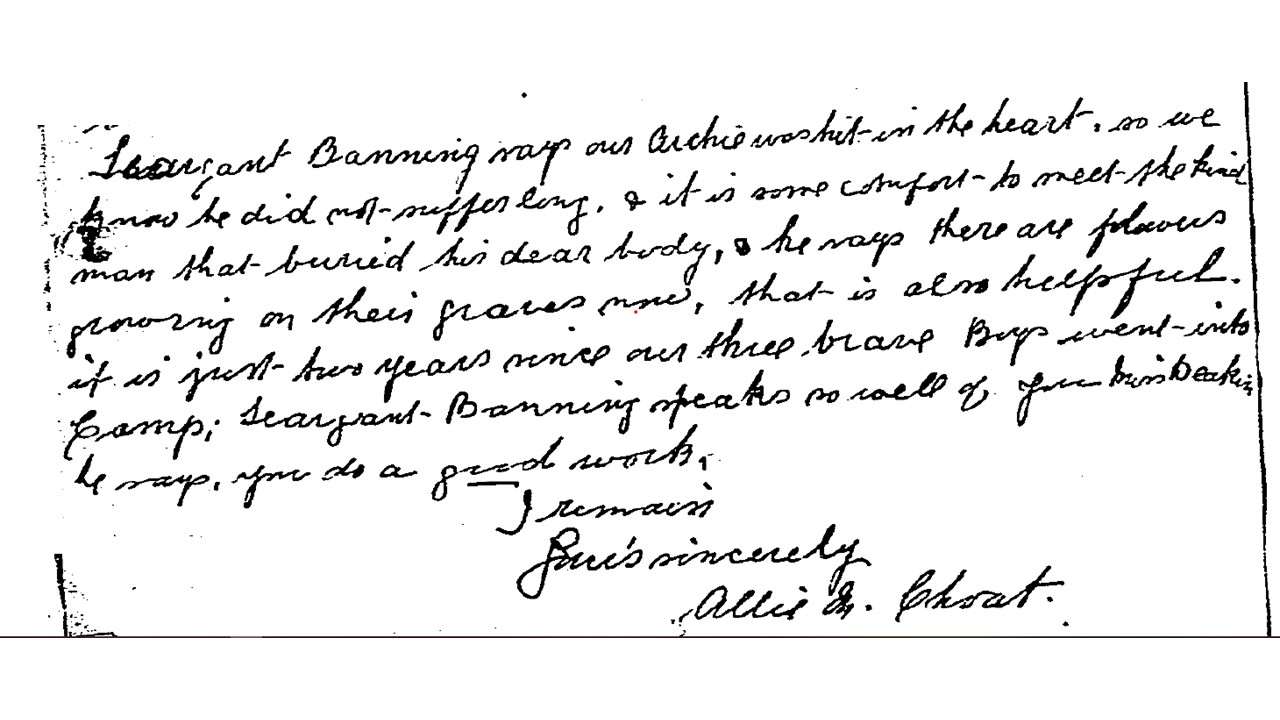 Seargant Banning says our Archie was hit in the heart. so we
know he did not suffer long. & it is some comfort to meet the kind
man that buried his dear body, & he says there are flowers
growing on their graves now, that is also helpful.
it is just two years since our three brave Boys went into
Camp; Seargant Banning speaks so well of you Miss Deakin
he says, you do a good work.
I remain
Your's sincerely
Allie M. Choat.